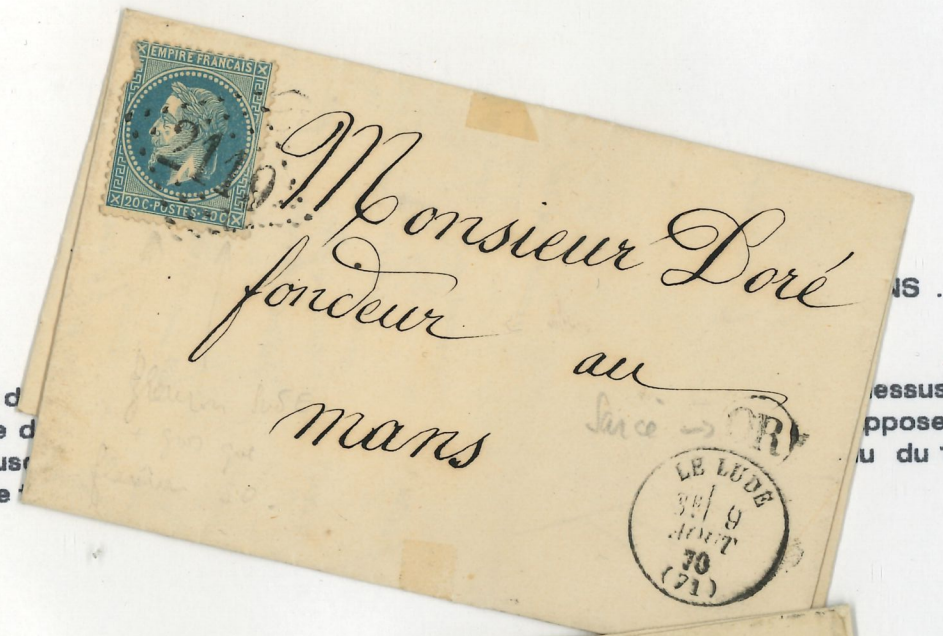 EMPIRE FRANCAIS
2119
20C·POSTES·20C
Monsieur Doré
fondeur
au
mans
Sarcé → OR
LE LUDE
9
AOUT
70
(71)
NS.
essus
ppose
u du
d
e d
use
e